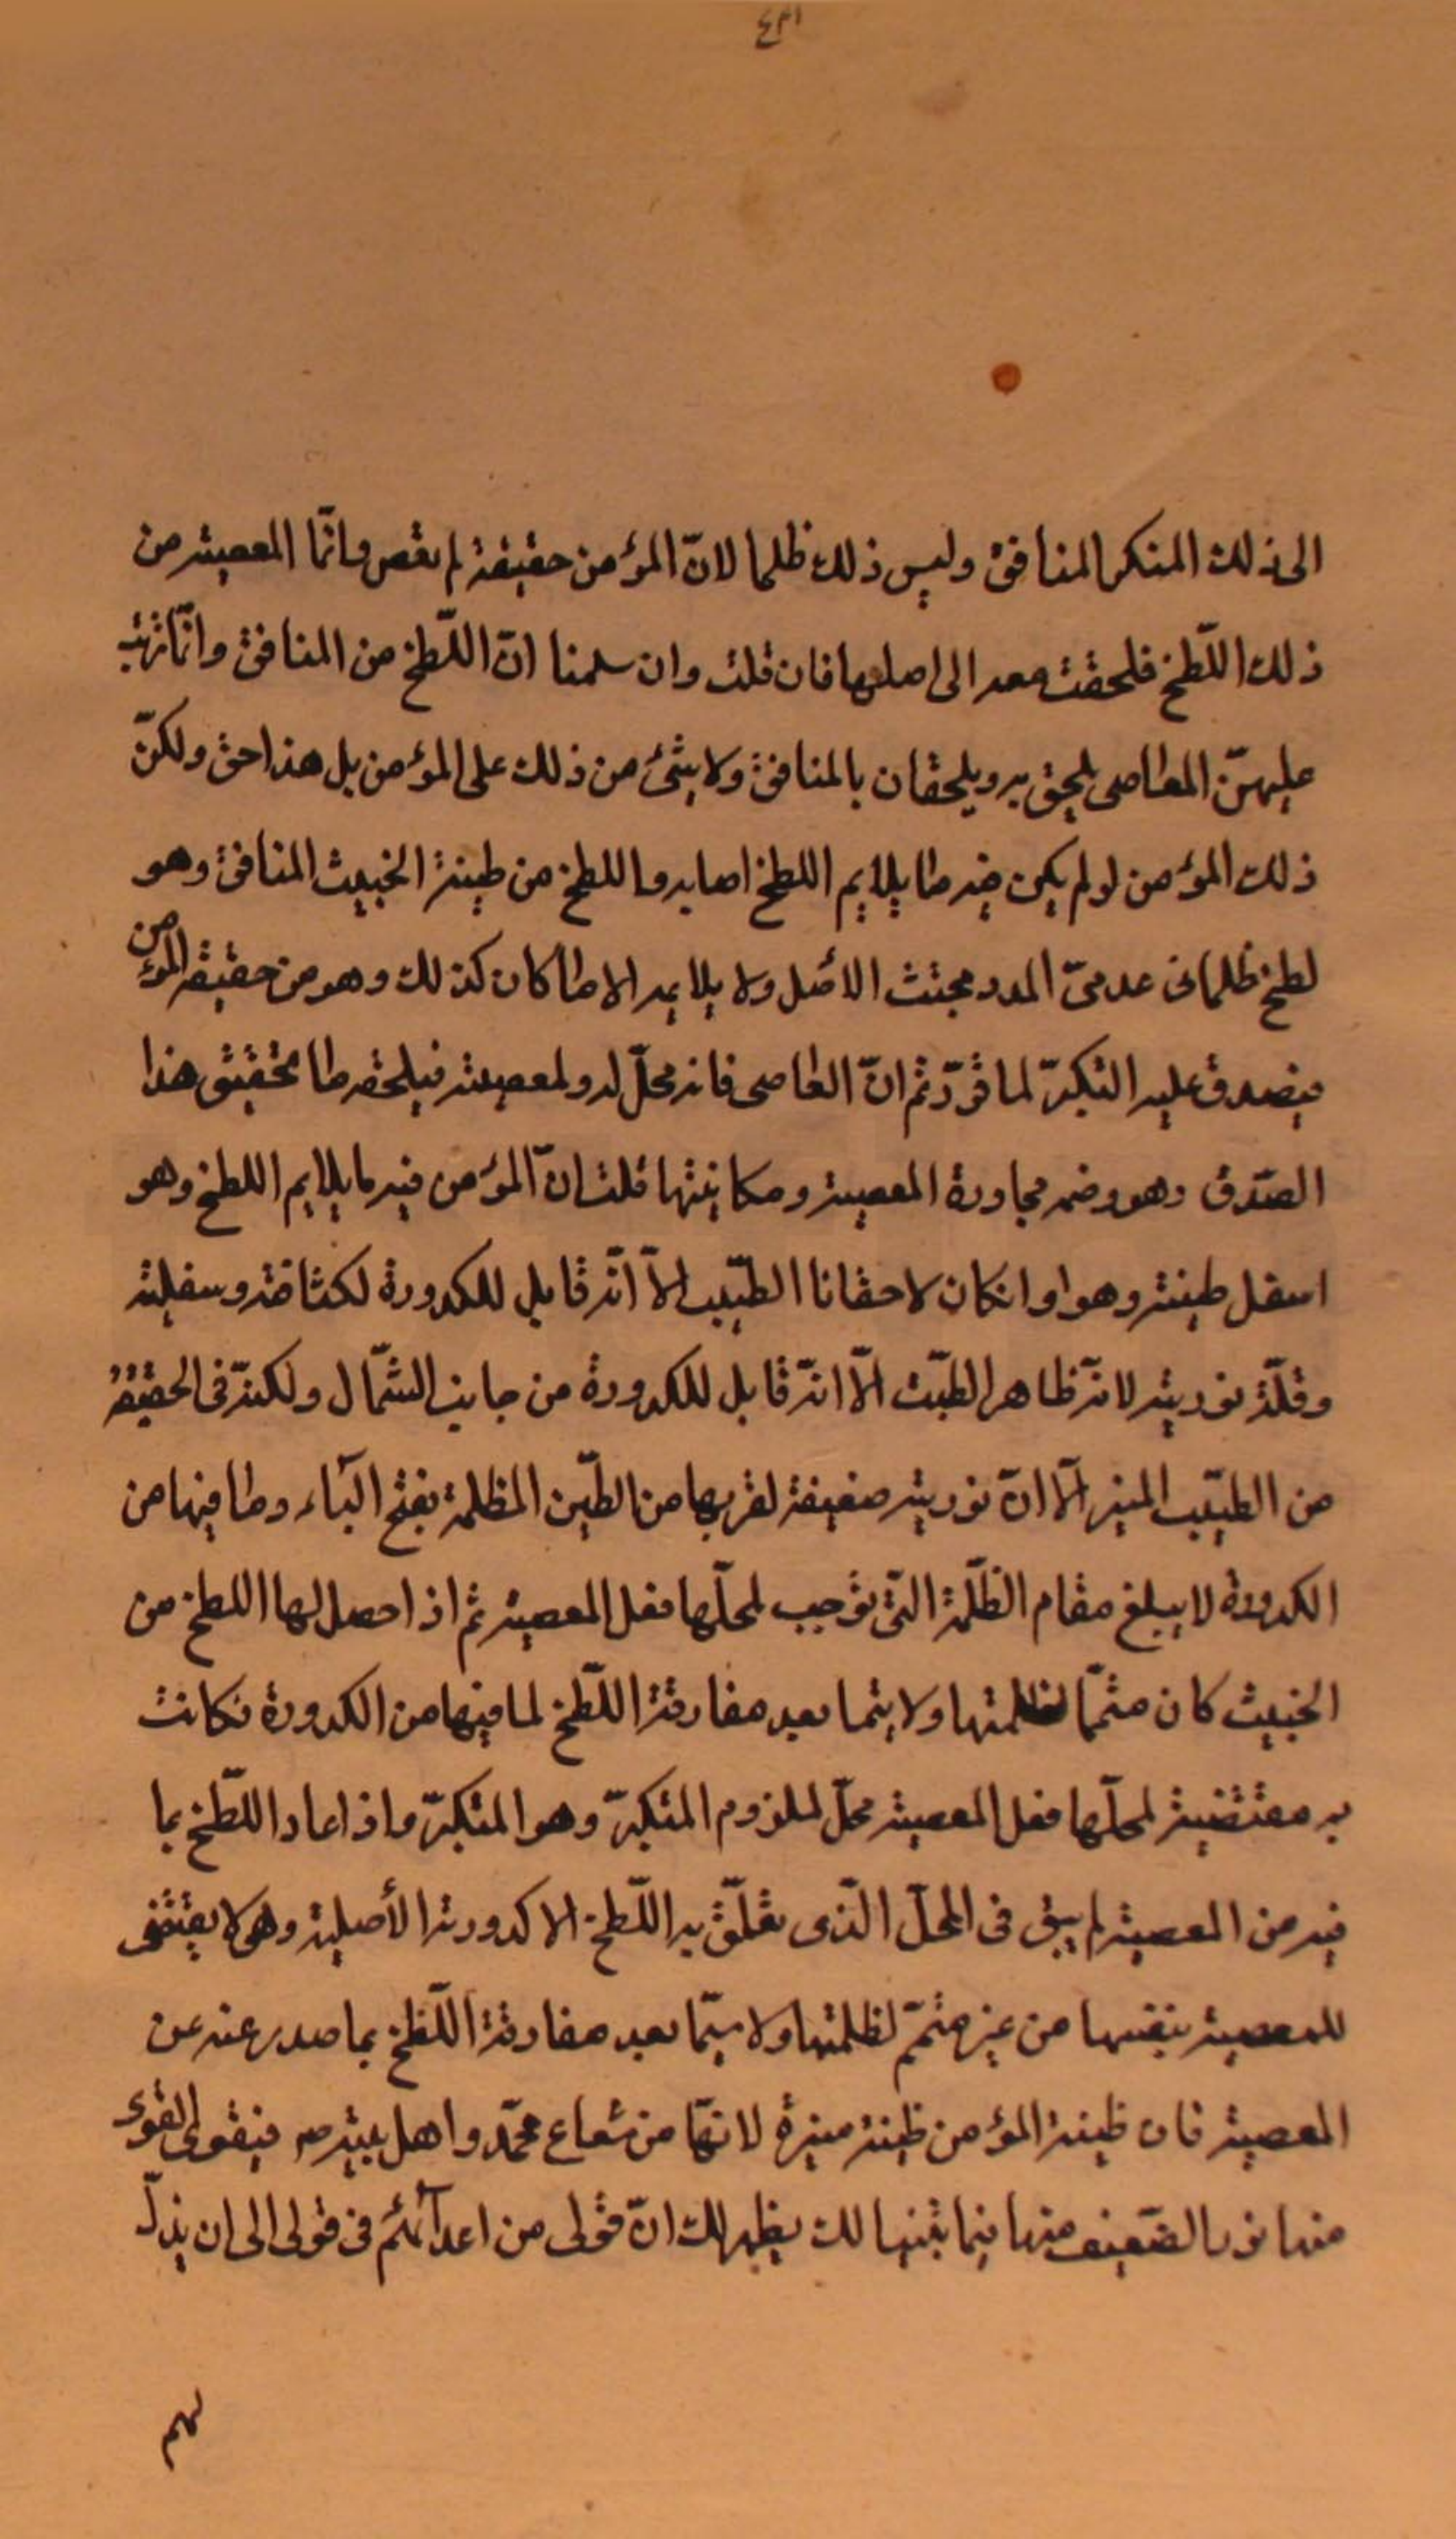 ٤٣١
الى ذلك المنكر المنافق وليس ذلك ظلما لانّ المؤمن حقيقة لم يعص وانّما المعصية من
ذلك اللّطخ فلحقت معه الى اصلها فان قلت وان سلمنا انّ اللّطخ من المنافق وانّما ترتّب
عليهنّ المعاصى يلحق به ويلحقان بالمنافق ولا شئ من ذلك على المؤمن بل هذا حق ولكنّ
ذلك المؤمن لو لم يكن فيه ما يلايم اللطخ اصابه واللطخ من طينة الخبيث المنافق وهو
لطخ ظلمانى عدمىّ المدد مجتث الاصل ولا يلايمه الا ما كان كذلك وهو من حقيقة المؤمن
فيصدق عليه التكبّر لما قرّر ثم انّ العاصى فانه محلّ له ولمعصيته فيلحقه ما تحقيق هذا
الصّدق وهو وضمه مجاورة المعصية ومكانيتها قلت انّ المؤمن فيه ما يلايم اللطخ وهو
اسفل طينته وهو او انكان لاحقانا الطيّب الاّ انّه قابل للكدورة لكثافته وسفليته
وقلّة نوريته لانّه ظاهر الطيّب الاّ انّه قابل للكدورة من جانب الشمّال ولكنّه فى الحقيقة
من الطيّب المنير الاّ انّ نوريته ضعيفة لقربها من الطّين المظلمة بفتح الياء وما فيها من
الكدورة لا يبلغ مقام الظّلمة التّى توجب لمحلّها فعل المعصية ثم اذا حصل لها اللطخ من
الخبيث كان متمّما لظلمتها ولا يتما بعد مفارقة اللّطخ لما فيها من الكدورة فكانت
به مقتضية لمحلّها فعل المعصية محلّ لملزوم المتكبّر وهو المتكبّر واذا عاد اللّطخ بما
فيه من المعصية لم يبق فى المحلّ الّذى تعلّق به اللّطخ الا كدورته الأصلية وهى لا يقتضى
للمعصية بنفسها من غير متمّم لظلمتها ولا سيّما بعد مفارقة اللّطخ بما صدر عنه عن
المعصية فان طينة المؤمن طينة منيرة لانّها من شعاع محمّد واهل بيته ص فيقوى القوى
منها نور الضّعيف منها فيما بينها لك يظهر لك انّ قولى من اعدائهم فى قولى الى ان يذلّ
لهم